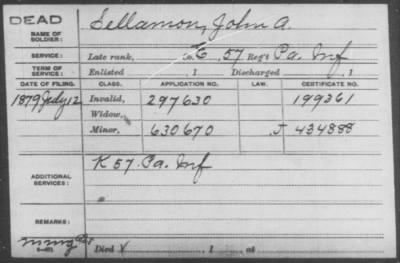 DEAD
NAME OF SOLDIER: Sellamon, John A.
SERVICE: Late rank, Co. E, 57 Reg't Pa. Inf
TERM OF SERVICE: Enlisted , 1 Discharged , 1
DATE OF FILING. CLASS. APPLICATION NO. LAW. CERTIFICATE NO.
1879 July 12 Invalid, 297630 199361
Widow,
Minor, 630670 J 434888
ADDITIONAL SERVICES: K 57 Pa. Inf
REMARKS:
Died , 1 , at